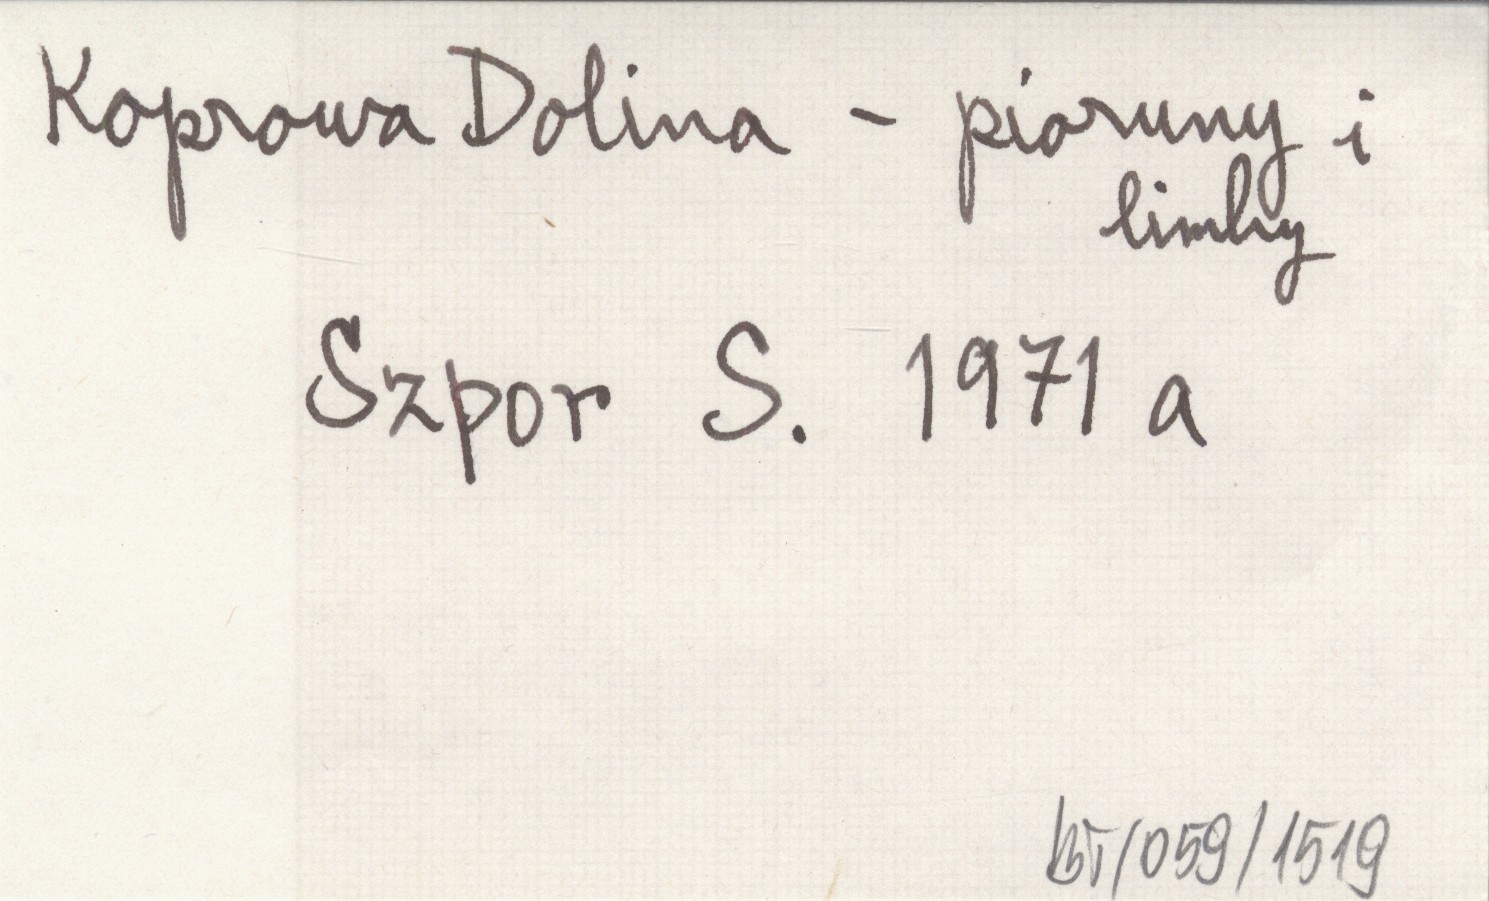 Koprowa Dolina - pioruny i
limby
Szpor S. 1971 a
/059/1519